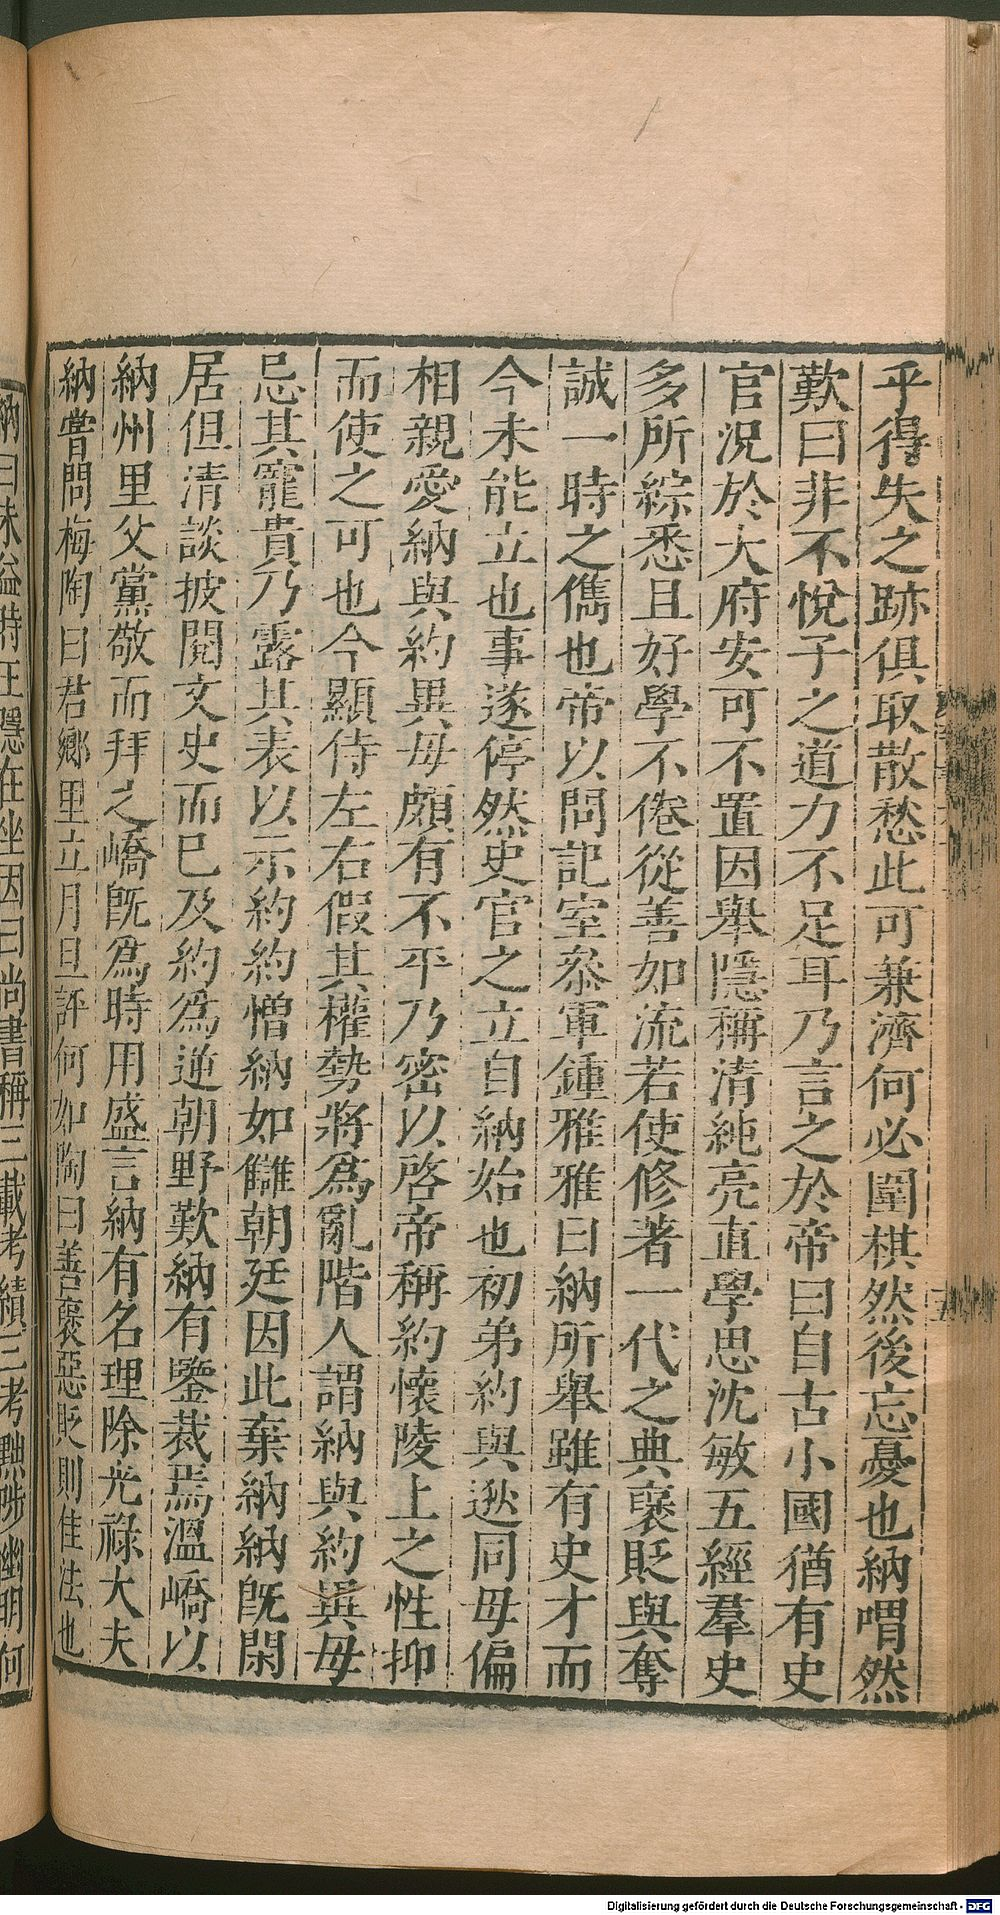 乎得失之跡俱取散愁此可兼濟何必圍棋然後忘憂也納喟然
歎曰非不悅子之道力不足耳乃言之於帝曰自古小國猶有史
官況於大府安可不置因舉隱稱清純亮直學思沈敏五經羣史
多所綜悉且好學不倦從善如流若使修著一代之典褒貶與奪
誠一時之儁也帝以問記室叅軍鍾雅雅曰納所舉雖有史才而
今未能立也事遂停然史官之立自納始也初弟約與逖同母偏
相親愛納與約異母頗有不平乃密以啓帝稱約懷陵上之性抑
而使之可也今顯侍左右假其權勢將爲亂階人謂納與約異母
忌其寵貴乃露其表以示約約憎納如讎朝廷因此棄納納既閑
居但清談披閱文史而已及約爲逆朝野歎納有鑒裁焉溫嶠以
納州里父黨敬而拜之嶠既爲時用盛言納有名理除光祿大夫
納嘗問梅陶曰君鄉里立月旦評何如陶曰善褒惡貶則佳法也
納曰未益時王隱在坐因曰尚書稱三載考績三考黜陟幽明何
Digitalisierung gefördert durch die Deutsche Forschungsgemeinschaft - DFG